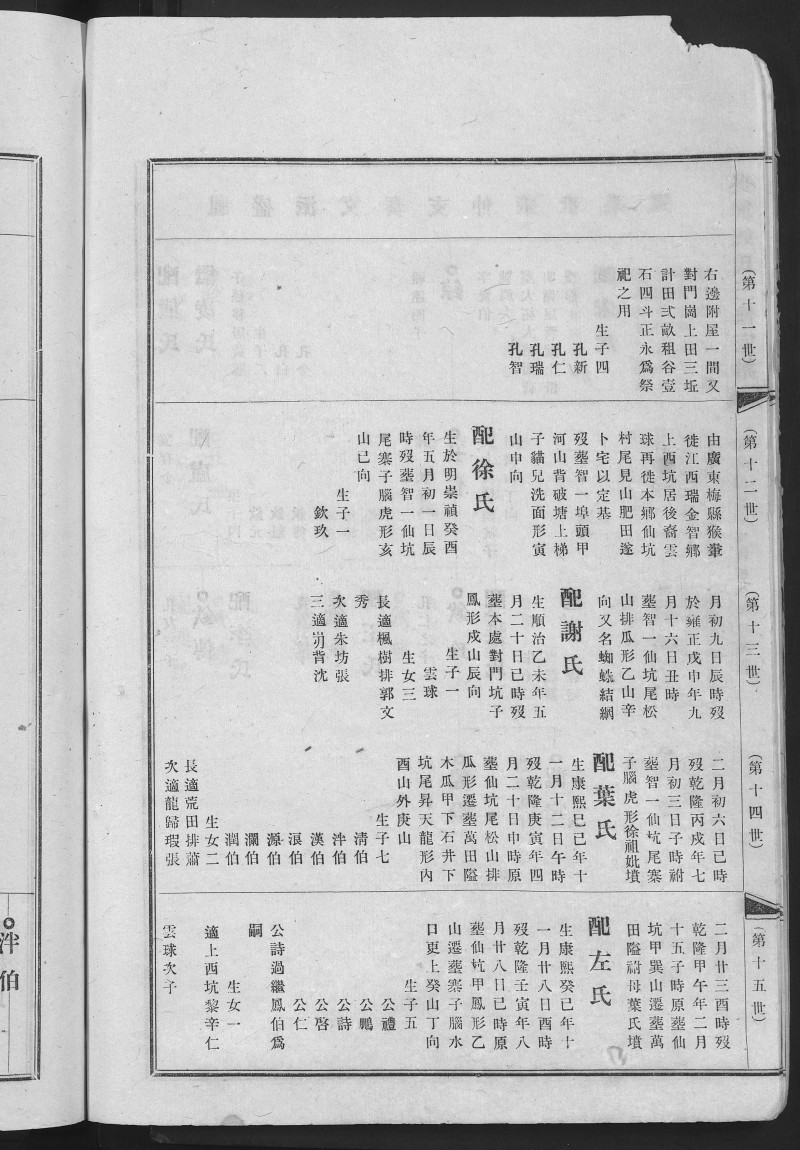 (第十一世)
右邊附屋一間又
對門崗上田三坵
計田弍畝租谷壹
石四斗正永為祭
祀之用
生子四
孔新
孔仁
孔瑞
孔智
(第十二世)
由廣東梅縣猴
徙江西瑞金智鄉
上西坑居後裔雲
球再徙本鄉仙坑
村尾見山肥田遂
卜宅以定基
歿塟智一埠頭甲
河山背破塘上梯
子貓兒洗面形寅
山申向
配徐氏
生於明崇禎癸酉
年五月初一日辰
時歿塟智一仙坑
尾寨子腦虎形亥
山巳向
生子一
欽玖
(第十三世)
月初九日辰時歿
於雍正戊申年九
月十六日丑時
塟智一仙坑尾松
山排瓜形乙山辛
向又名蜘蛛結網
配謝氏
生順治乙未年五
月二十日巳時歿
塟本處對門坑子
鳳形戍山辰向
生子一
雲球
生女三
長適楓樹排郭文
秀
次適朱坊張
三適背沈
(第十四世)
二月初六日巳時
歿乾隆丙戍年七
月初三日子時祔
塟智一仙坑尾寨
子腦虎形徐祖妣墳
配葉氏
生康熙巳巳年十
一月十二日午時
歿乾隆庚寅年四
月二十日申時原
塟仙坑尾松山排
瓜形遷塟萬田隘
木瓜甲下石井下
坑尾昇天龍形內
酉山外庚山
生子七
清伯
泮伯
漢伯
浪伯
源伯
瀾伯
潤伯
生女二
長適荒田排蕭
次適龍歸瑕張
(第十五世)
二月廿三酉時歿
乾隆甲午年二月
十五子時原塟仙
坑甲巽山遷塟萬
田隘祔母葉氏墳
配左氏
生康熙癸巳年十
一月廿八日酉時
歿乾隆壬寅年八
月廿八日巳時原
塟仙坑甲鳳形乙
山遷塟寨子腦水
口更上癸山丁向
生子五
公禮
公鵬
公詩
公啓
公仁
公詩過繼鳳伯為
嗣
生女一
適上西坑黎辛仁
雲球次子
泮伯